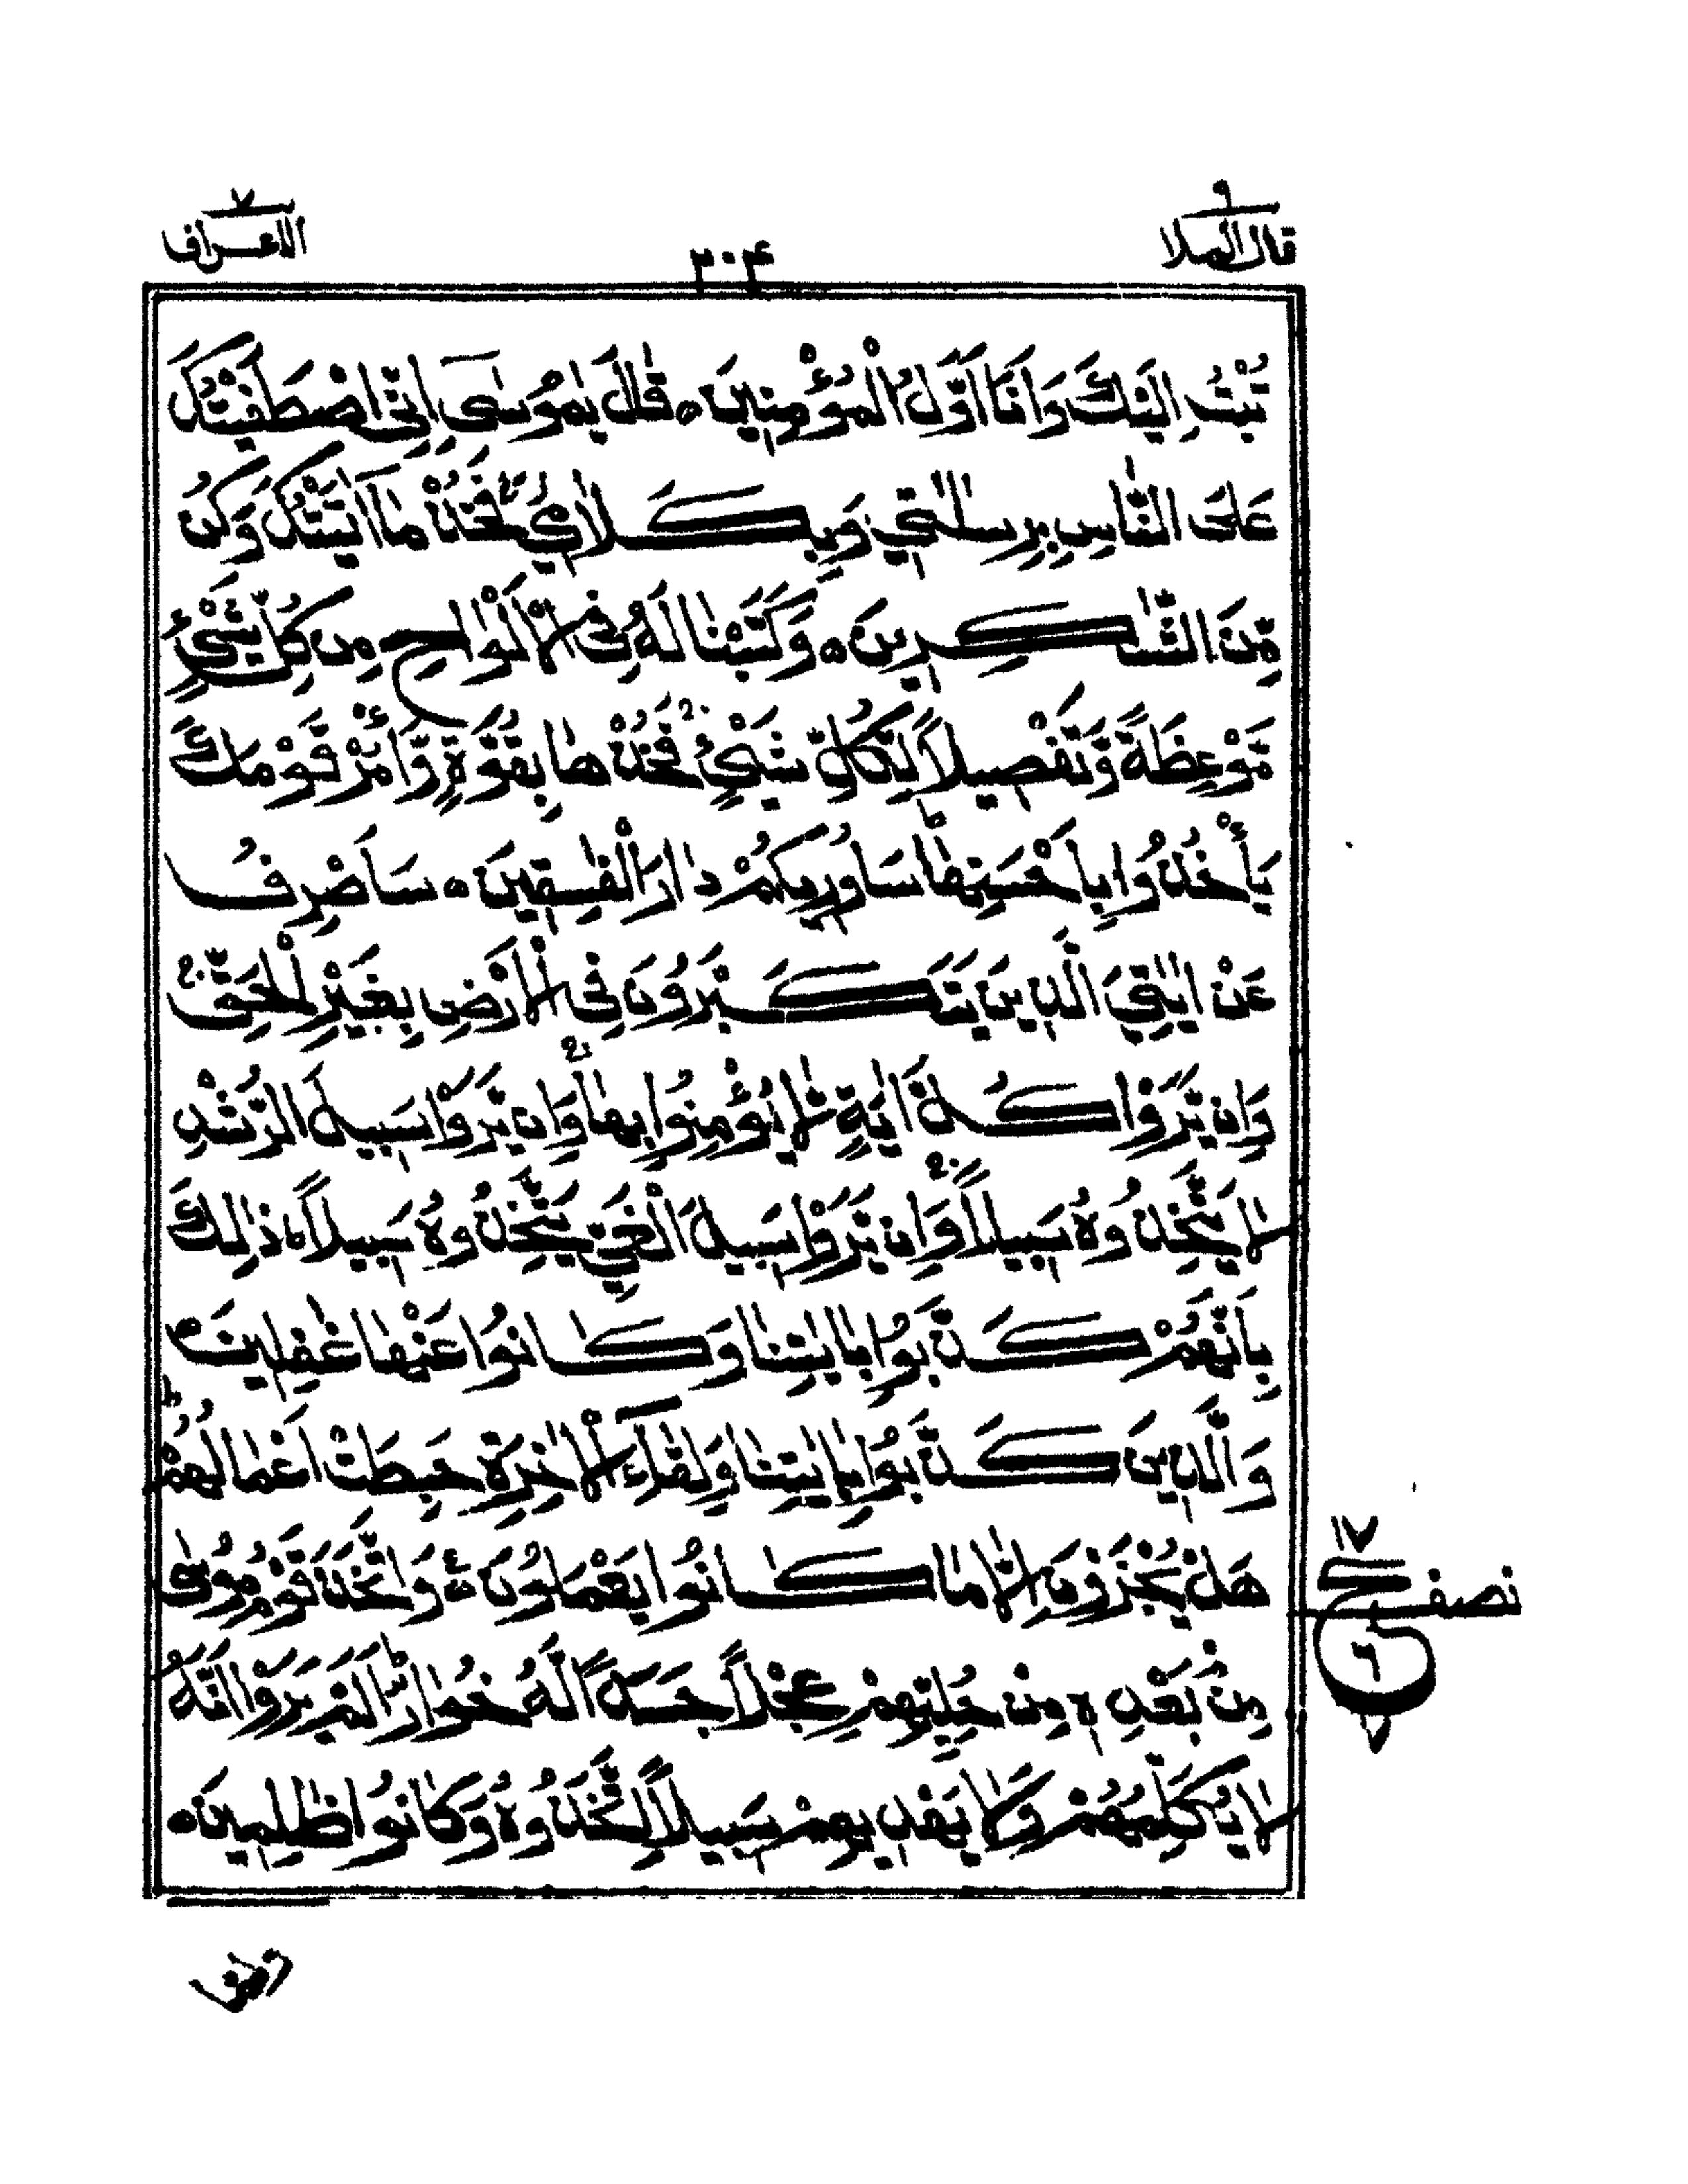 قال الملا ٩
٢٠٤
الاعراف ٧
تُبْتُ اِلَيْكَ وَاَنَا اَوَّلُ الْمُؤْمِنِيْنَ ه قَالَ يٰمُوْسٰۤى اِنِّى اصْطَفَيْتُكَ
عَلَى النَّاسِ بِرِسٰلٰتِيْ وَبِكَلَامِيْ ۖ فَخُذْ مَاۤ اٰتَيْتُكَ وَكُنْ
مِّنَ الشّٰكِرِيْنَ ه وَكَتَبْنَا لَهٗ فِى الْاَلْوَاحِ مِنْ كُلِّ شَيْءٍ
مَّوْعِظَةً وَّتَفْصِيْلًا لِّكُلِّ شَيْءٍ ۚ فَخُذْهَا بِقُوَّةٍ وَّاْمُرْ قَوْمَكَ
يَأْخُذُوْا بِاَحْسَنِهَا ؕ سَاُورِيْكُمْ دَارَ الْفٰسِقِيْنَ ه سَاَصْرِفُ
عَنْ اٰيٰتِيَ الَّذِيْنَ يَتَكَبَّرُوْنَ فِى الْاَرْضِ بِغَيْرِ الْحَقِّ ؕ
وَاِنْ يَّرَوْا كُلَّ اٰيَةٍ لَّا يُؤْمِنُوْا بِهَا ۚ وَاِنْ يَّرَوْا سَبِيْلَ الرُّشْدِ
لَا يَتَّخِذُوْهُ سَبِيْلًا ۚ وَاِنْ يَّرَوْا سَبِيْلَ الْغَيِّ يَتَّخِذُوْهُ سَبِيْلًا ؕ ذٰلِكَ
بِاَنَّهُمْ كَذَّبُوْا بِاٰيٰتِنَا وَكَانُوْا عَنْهَا غٰفِلِيْنَ ه
وَالَّذِيْنَ كَذَّبُوْا بِاٰيٰتِنَا وَلِقَآءِ الْاٰخِرَةِ حَبِطَتْ اَعْمَالُهُمْ ؕ
هَلْ يُجْزَوْنَ اِلَّا مَا كَانُوْا يَعْمَلُوْنَ ه وَاتَّخَذَ قَوْمُ مُوْسٰى
مِنْۢ بَعْدِهٖ مِنْ حُلِيِّهِمْ عِجْلًا جَسَدًا لَّهٗ خُوَارٌ ؕ اَلَمْ يَرَوْا اَنَّهٗ
لَا يُكَلِّمُهُمْ وَلَا يَهْدِيْهِمْ سَبِيْلًا ۘ اِتَّخَذُوْهُ وَكَانُوْا ظٰلِمِيْنَ ه
نصف
١٧
ع
٦
٧